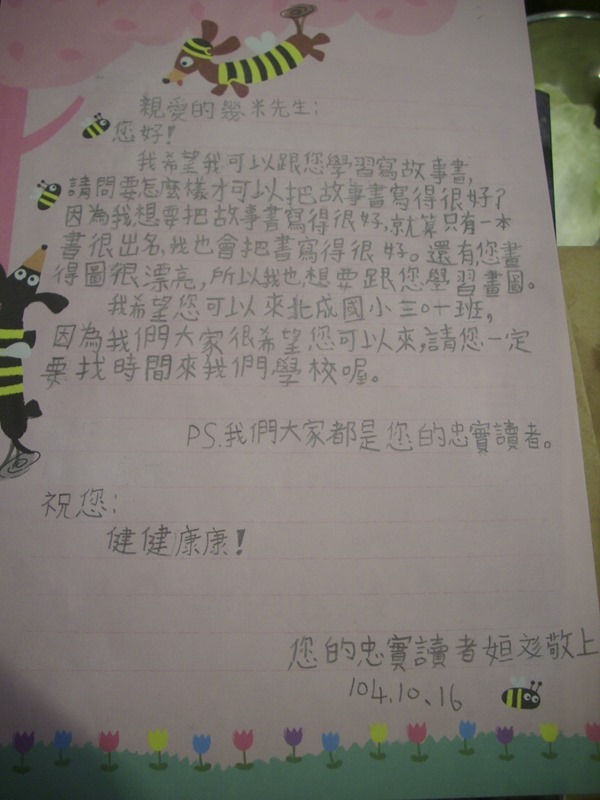 親愛的幾米先生:
您好!
我希望我可以跟您學習寫故事書,
請問要怎麼樣才可以把故事書寫得很好?
因為我想要把故事書寫得很好,就算只有一本
書很出名,我也會把書寫得很好。還有您畫
得圖很漂亮,所以我也想要跟您學習畫圖。
我希望您可以來北成國小三〇十班,
因為我們大家很希望您可以來,請您一定
要找時間來我們學校喔。
PS.我們大家都是您的忠實讀者。
祝您:
健健康康!
您的忠實讀者姮彣敬上
104.10、16